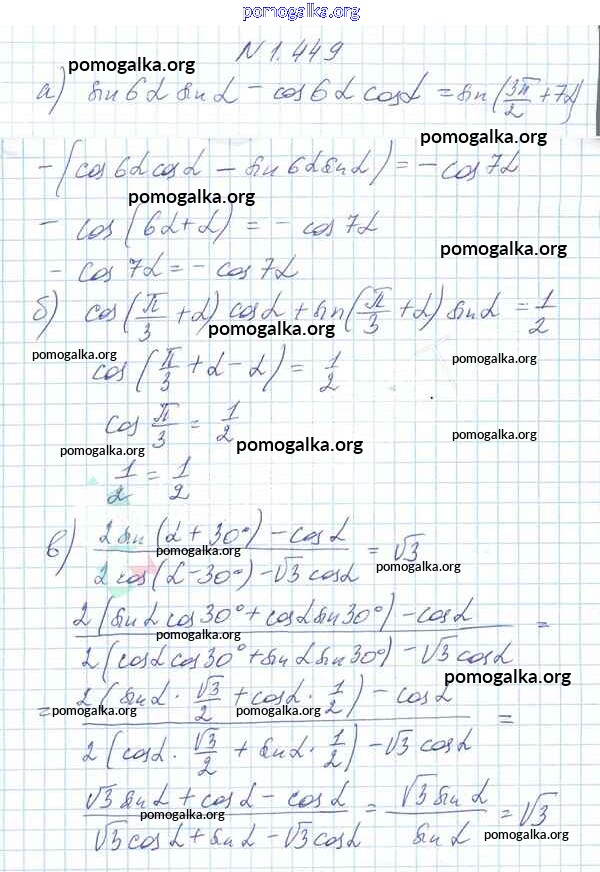 pomogalka.org
N 1.449
pomogalka.org
а) sin6α sinα − cos6α cosα = sin(3π/2 + 7α)
pomogalka.org
pomogalka.org
−(cos6α cosα − sin6α sinα) = −cos7α
pomogalka.org
− cos(6α+α) = − cos7α
pomogalka.org
− cos7α = − cos7α
б) cos(π/3 + α) cosα + sin(π/3 + α) sinα = 1/2
pomogalka.org
pomogalka.org
pomogalka.org
cos(π/3 + α − α) = 1/2
cos π/3 = 1/2
pomogalka.org
pomogalka.org
pomogalka.org
1/2 = 1/2
в) (2 sin(α + 30°) − cosα)/(2 cos(α − 30°) − √3 cosα) = √3
pomogalka.org
pomogalka.org
pomogalka.org
(2(sinα cos30° + cosα sin30°) − cosα)/(2(cosα cos30° + sinα sin30°) − √3 cosα) =
pomogalka.org
pomogalka.org
= (2(sinα · √3/2 + cosα · 1/2) − cosα)/(2(cosα · √3/2 + sinα · 1/2) − √3 cosα) =
pomogalka.org
pomogalka.org
pomogalka.org
(√3 sinα + cosα − cosα)/(√3 cosα + sinα − √3 cosα) = (√3 sinα)/(sinα) = √3
pomogalka.org
pomogalka.org